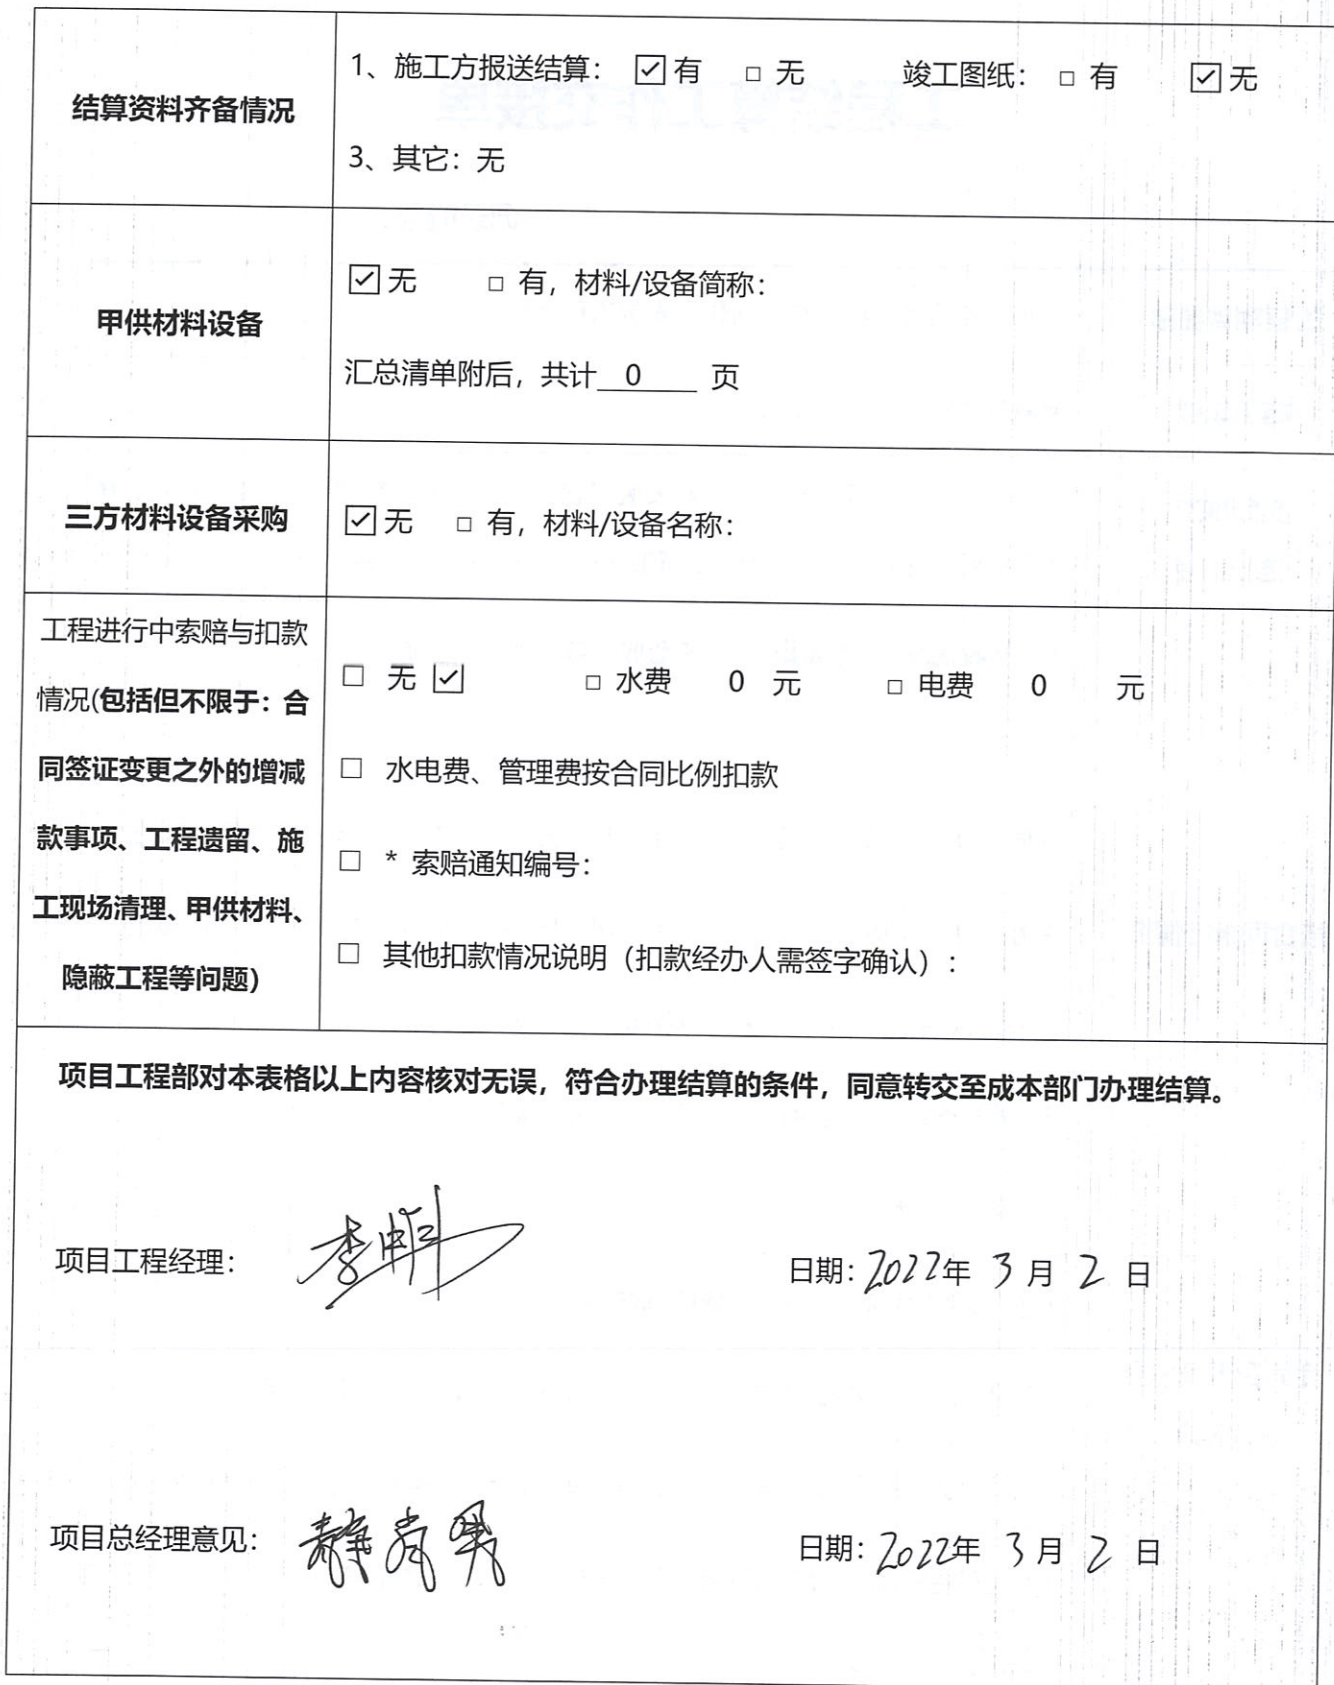 结算资料齐备情况
1、施工方报送结算： ☑有 □ 无 竣工图纸： □ 有 ☑无
3、其它：无
甲供材料设备
☑无 □ 有，材料/设备简称：
汇总清单附后，共计 0 页
三方材料设备采购
☑无 □ 有，材料/设备名称：
工程进行中索赔与扣款
情况(包括但不限于：合
同签证变更之外的增减
款事项、工程遗留、施
工现场清理、甲供材料、
隐蔽工程等问题)
□ 无 ☑ □ 水费 0 元 □ 电费 0 元
□ 水电费、管理费按合同比例扣款
□ * 索赔通知编号：
□ 其他扣款情况说明（扣款经办人需签字确认）：
项目工程部对本表格以上内容核对无误，符合办理结算的条件，同意转交至成本部门办理结算。
项目工程经理： 日期：2022年 3 月 2 日
项目总经理意见： 日期：2022年 3 月 2 日